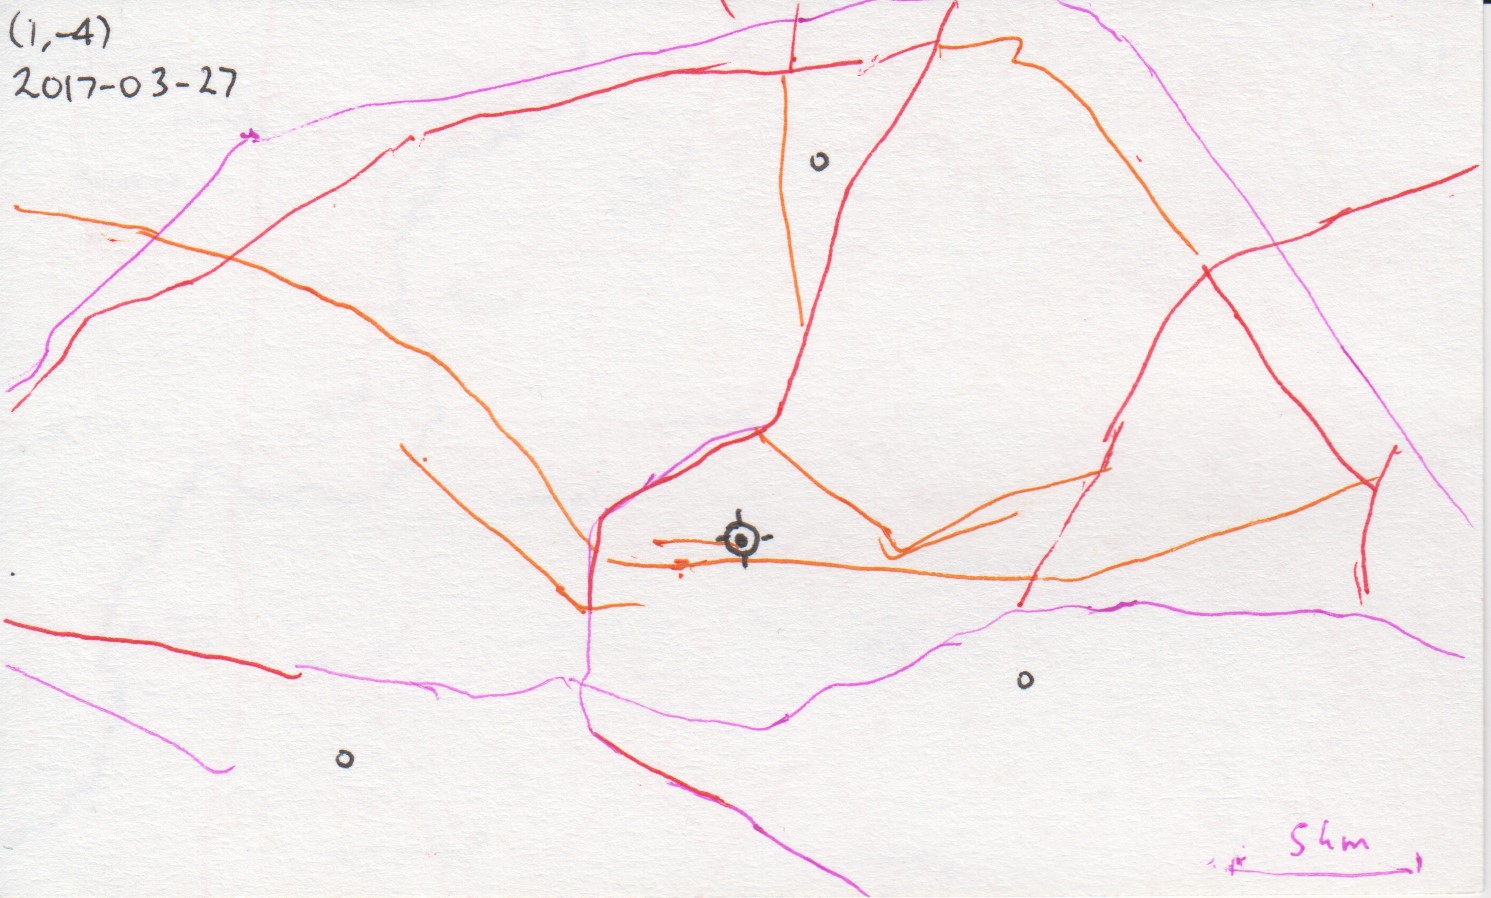 (1,-4)
2017-03-27
5km